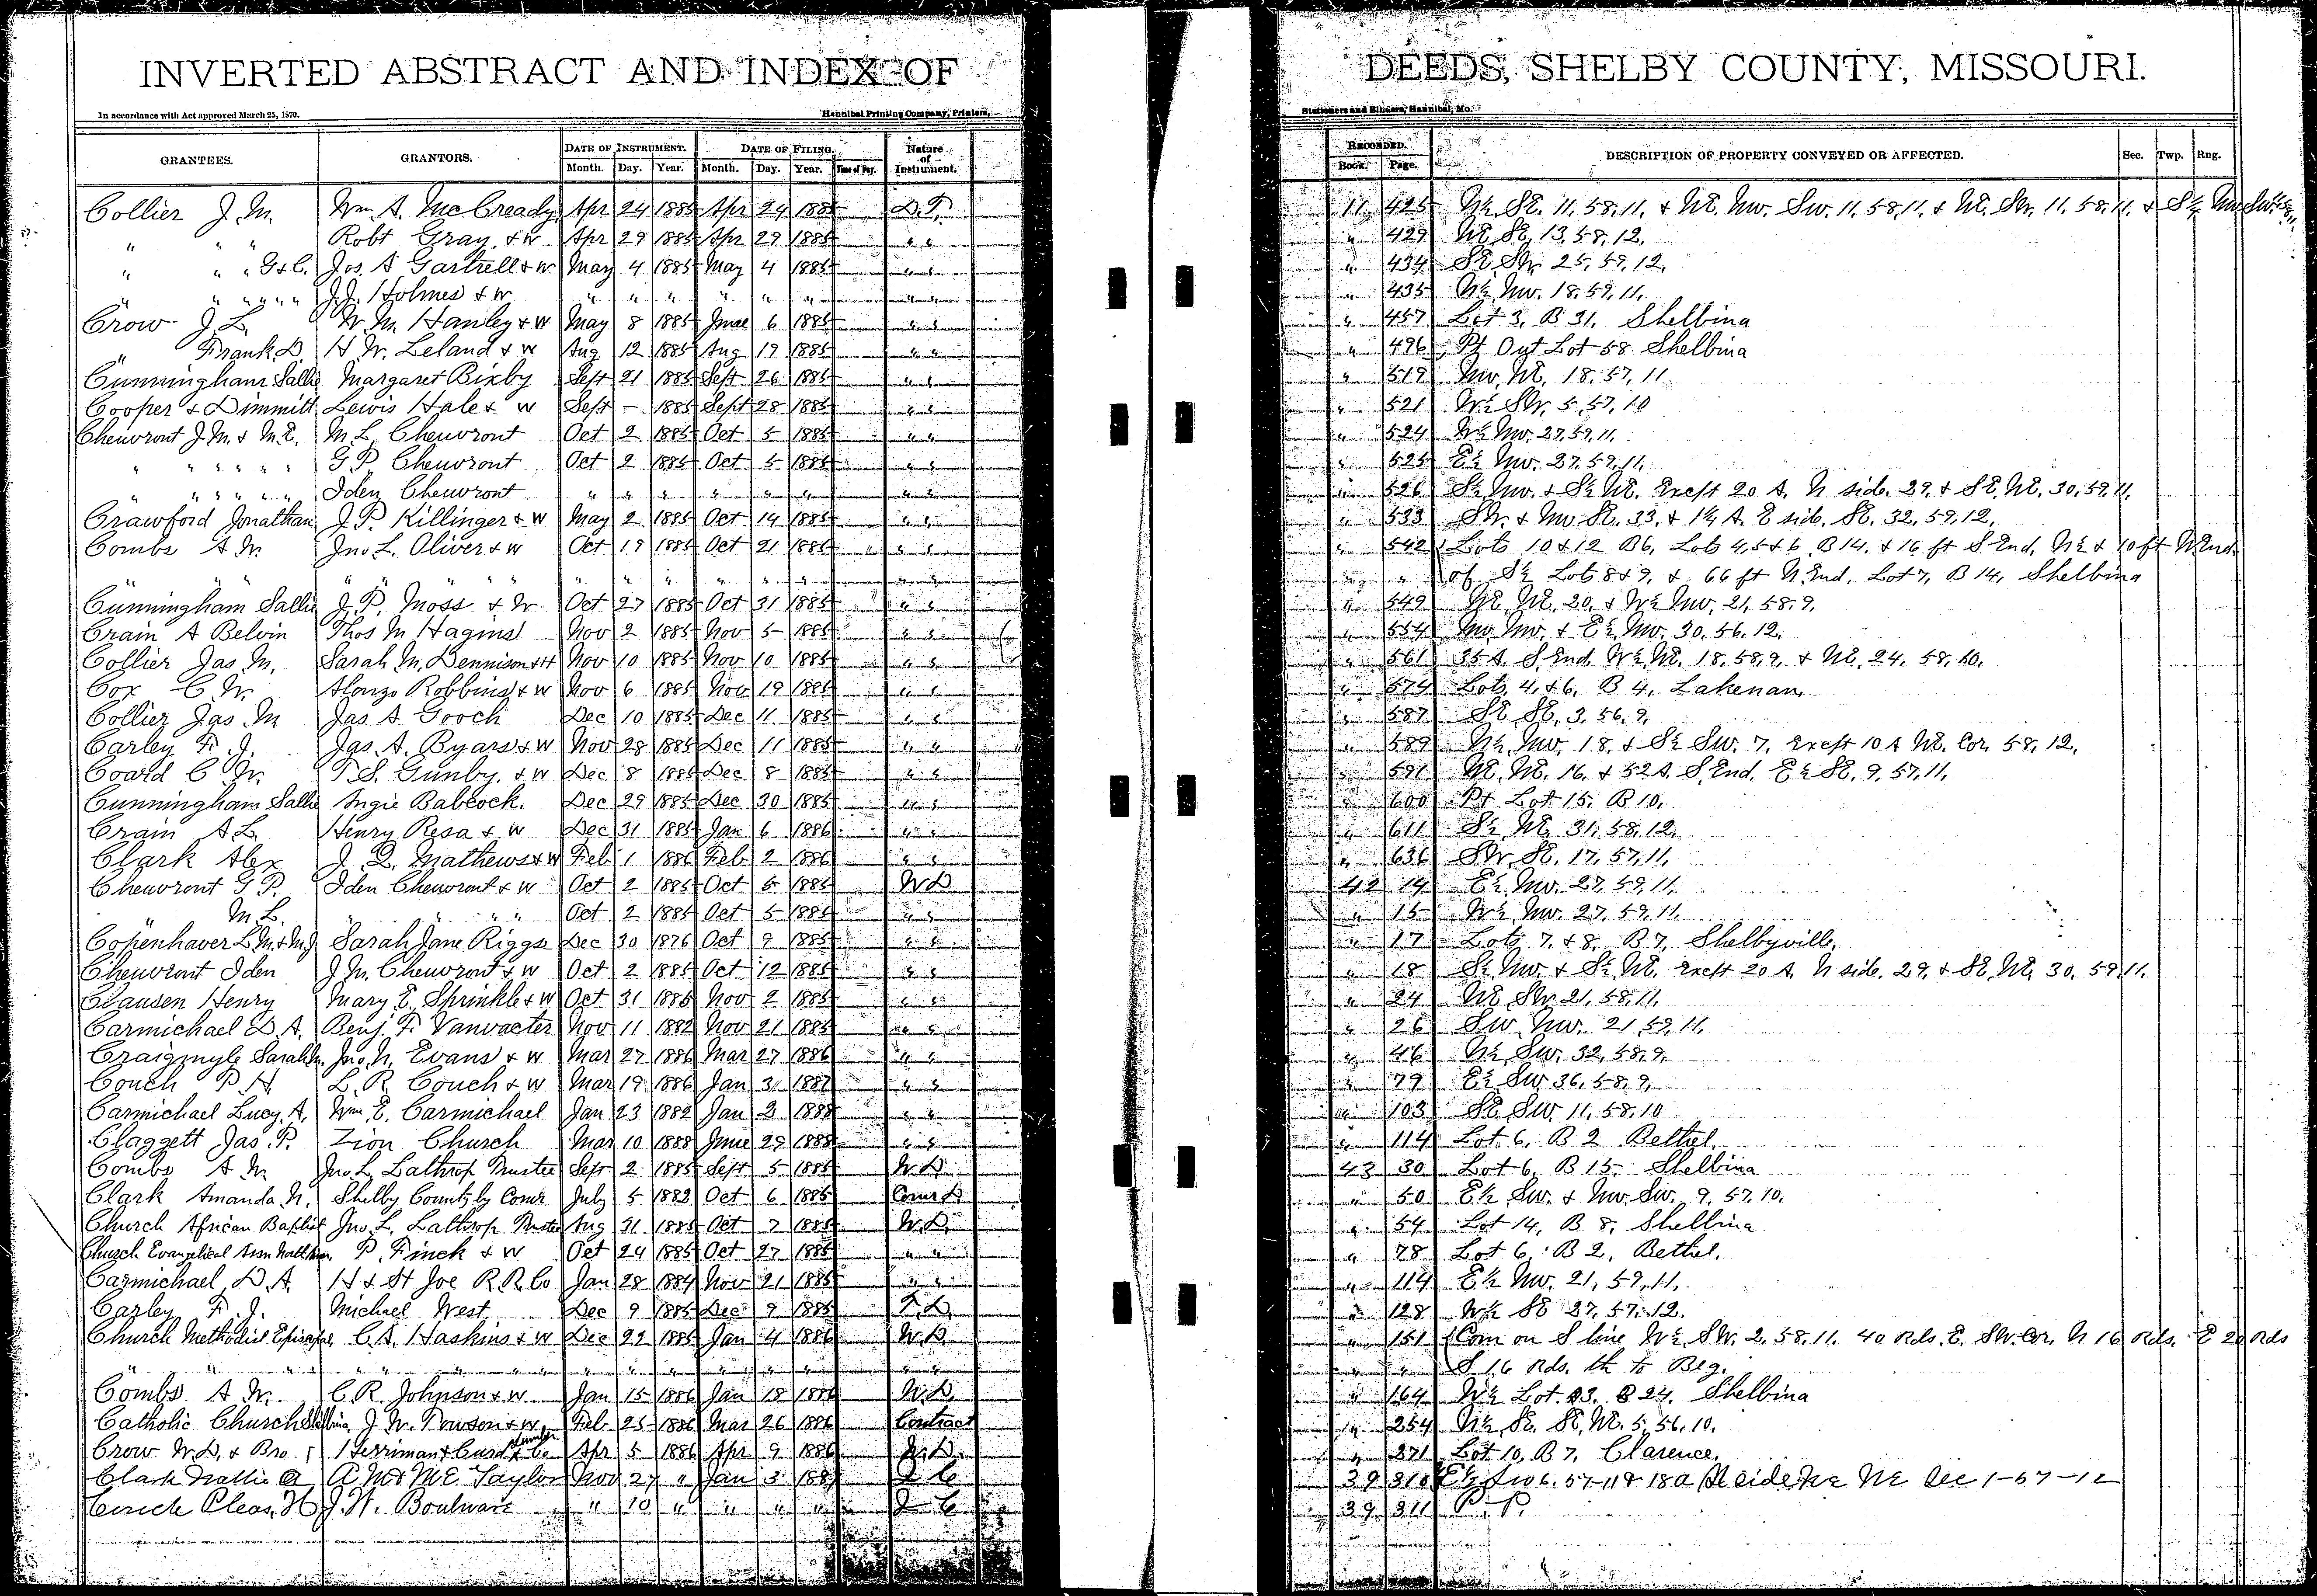 INVERTED ABSTRACT AND INDEX OF DEEDS, SHELBY COUNTY, MISSOURI.
In accordance with Act approved March 25, 1870. Hannibal Printing Company, Printers, Stationers and Binders, Hannibal, Mo.
GRANTEES. GRANTORS. DATE OF INSTRUMENT. DATE OF FILING. Nature of Instrument. RECORDED. DESCRIPTION OF PROPERTY CONVEYED OR AFFECTED. Sec. Twp. Rng.
Month. Day. Year. Month. Day. Year. Time of Day. Book. Page.
Collier J. M. Wm. A. McCready Apr 24 1885 Apr 24 1885 D.T. 11 425 N½ SE. 11, 58, 11, & NE. NW. SW. 11, 58, 11, & NE. SW. 11, 58, 11, & S½
" " " Robt Gray & W Apr 29 1885 Apr 29 1885 " " " 429 NE SE, 13, 58, 12,
" " " G & C. Jos. A Gartrell & W May 4 1885 May 4 1885 " " " 434 SE SW. 25, 59, 12,
" " " " " " J. J. Holmes & W " " " " " " " " " 435 N½ NW. 18, 59, 11,
Crow J. L. W. M. Hanley & W May 8 1885 June 6 1885 " " " 457 Lot 3, B 31, Shelbina
" Frank D. H. W. Leland & W Aug 12 1885 Aug 19 1885 " " " 496 Pt Out Lot 58 Shelbina
Cunningham Sallie Margaret Bixby Sept 21 1885 Sept 26 1885 " " " 519 NW, NE, 18, 57, 11
Cooper & Dimmitt Lewis Hale & W Sept – 1885 Sept 28 1885 " " " 521 W½ SW. 5, 57, 10
Cheuvront J. M. & M. E. M. L. Cheuvront Oct 2 1885 Oct 5 1885 " " " 524 W½ NW. 27, 59, 11,
" " " " " G. P. Cheuvront Oct 2 1885 Oct 5 1885 " " " 525 E½ NW. 27, 59, 11,
" " " " " Iden Cheuvront " " " " " " " " " 526 S½ NW. & S½ NE. Except 20 A. N side. 29, & SE. NE. 30, 59, 11,
Crawford Jonathan J. P. Killinger & W May 2 1885 Oct 14 1885 " " " 533 SW. & NW SE. 33, & 1½ A. E side. SE. 32, 59, 12,
Combs A. W. Jno. L. Oliver & W Oct 19 1885 Oct 21 1885 " " " 542 Lots 10 & 12 B 6, Lots 4, 5 & 6 B 14, & 16 ft S End, N½ & 10 ft N End
" " " " " " " " " " " " " " " " of S½ Lots 8 & 9, & 66 ft N End, Lot 7, B 14, Shelbina
Cunningham Sallie J. P. Moss & W Oct 27 1885 Oct 31 1885 " " " 549 NE, NE, 20, & W½ NW, 21, 58, 9,
Crain A Belvin Thos M Hagins Nov 2 1885 Nov 5 1885 " " " 554 NW, NW, & E½ NW, 30, 56, 12,
Collier Jas. M. Sarah M. Dennison & H Nov 10 1885 Nov 10 1885 " " " 561 35 A S End W½ NE. 18, 58, 9, & NE, 24, 58, 10,
Cox C. W. Alonzo Robbins & W Nov 6 1885 Nov 19 1885 " " " 574 Lots 4, & 6, B 4, Lakenan
Collier Jas. M Jas A Gooch Dec 10 1885 Dec 11 1885 " " " 587 SE SE, 3, 56, 9,
Carley F. J. Jas. A. Byars & W Nov 28 1885 Dec 11 1885 " " " 589 N½ NW, 18, & S½ SW. 7, Except 10 A NE. Cor. 58, 12,
Coard C. W. T. S. Gunby & W Dec 8 1885 Dec 8 1885 " " " 591 NE, NE, 16, & 52 A. S. End, E½ SE. 9, 57, 11,
Cunningham Sallie Angie Babcock. Dec 29 1885 Dec 30 1885 " " " 600 Pt Lot 15, B 10,
Crain A L. Henry Resa & W Dec 31 1885 Jan 6 1886 " " " 611 S½ NE 31, 58, 12,
Clark Alex J. Q. Mathews & W Feb 1 1886 Feb 2 1886 " " " 636 SW. SE. 17, 57, 11,
Cheuvront G P. Iden Cheuvront & W Oct 2 1885 Oct 5 1885 W.D 42 14 E½ NW. 27, 59, 11,
" M. L. " " " " Oct 2 1885 Oct 5 1885 " " " 15 W½ NW. 27, 59, 11,
Copenhaver L. M. & M. J. Sarah Jane Riggs Dec 30 1876 Oct 9 1885 " " " 17 Lots 7, & 8, B 7, Shelbyville,
Cheuvront Iden J. M. Cheuvront & W Oct 2 1885 Oct 12 1885 " " " 18 S½ NW. & S½ NE. Except 20 A, N side. 29, & SE, NE, 30, 59, 11.
Clausen Henry Mary E. Sprinkle & W Oct 31 1885 Nov 2 1885 " " " 24 NE SW. 21, 58, 11,
Carmichael D. A. Benj. F. Vanvacter Nov 11 1882 Nov 21 1885 " " " 26 SW. NW. 21, 59, 11,
Craigmyle Sarah M. Jno. N. Evans & W Mar 27 1886 Mar 27 1886 " " " 46 N½ SW. 32, 58, 9,
Couch P H L. R. Couch & W Mar 19 1886 Jan 3 1887 " " " 79 E½ SW 36, 58, 9,
Carmichael Lucy A, Wm. E. Carmichael Jan 23 1882 Jan 3 1888 " " " 103 SE SW. 11, 58, 10
Claggett Jas. P. Zion Church Mar 10 1888 June 29 1888 " " " 114 Lot 6, B 2 Bethel
Combs A W. Jno. L. Lathrop Trustee Sept 2 1885 Sept 5 1885 W.D 43 30 Lot 6, B 15 Shelbina
Clark Amanda N. Shelby County by Comr July 5 1882 Oct 6 1885 Comr D " 50 E½ SW. & NW. SW. 9, 57, 10.
Church African Baptist Jno. L. Lathrop Trustee Aug 31 1885 Oct 7 1885 W.D. " 54 Lot 14, B 8, Shelbina
Church Evangelical P. Finck & W Oct 24 1885 Oct 27 1885 " " " 78 Lot 6, B 2, Bethel,
Carmichael, D. A. H & St Joe R. R. Co Jan 28 1884 Nov 21 1885 " " " 114 E½ NW. 21, 59, 11,
Carley F. J. Michael West Dec 9 1885 Dec 9 1885 T.D. " 128 W½ SE 27, 57, 12.
Church Methodist Episcopal, C. A. Haskins & W Dec 22 1885 Jan 4 1886 W.D " 151 Com on S line W½ SW. 2, 58, 11. 40 Rds. E. SW. Cor. N 16 Rds. E 20 Rds
" " " " " " " " " " " " " " " " S 16 Rds. th to Beg.
Combs A. W. C. R. Johnson & W Jan 15 1886 Jan 18 1886 W.D. " 164 W½ Lot 3, B 24, Shelbina
Catholic Church Shelbina J. W. Towson & W Feb 25 1886 Mar 26 1886 Contract " 254 N½ SE. SE, NE. 5, 56, 10,
Crow W. D. & Bro. Herriman & Curd Lumber Co. Apr 5 1886 Apr 9 1886 W.D. " 271 Lot 10, B 7, Clarence,
Clark A M & M E Taylor Nov 27 " Jan 3 1887 39 310 E½ SW 6. 57-11 & 18 a side NE Sec 1-57-12
Pleas. H J. W. Boulware " 10 " " " " 39 311 P. P.